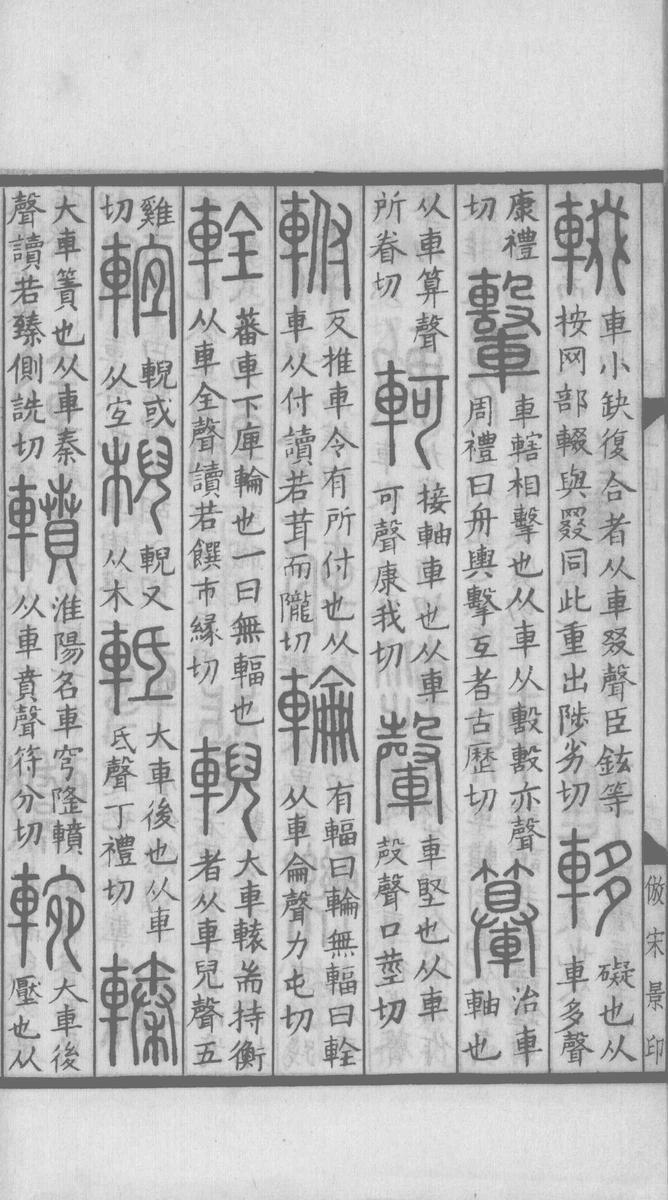 輟車小缺復合者从車叕聲臣鉉等按网部輟與罬同此重出陟劣切𨋩礙也从車多聲
康禮切轚車轄相擊也从車从毄毄亦聲周禮曰舟輿擊互者古歷切䡵治車軸也
从車算聲所眷切軻接軸車也从車可聲康我切䡰車堅也从車殸聲口莖切
軵反推車令有所付也从車从付讀若茸而隴切輪有輻曰輪無輻曰輇从車侖聲力屯切
輇蕃車下庳輪也一曰無輻也从車全聲讀若饌市緣切輗大車轅耑持衡者从車兒聲五
雞切輗或从宐棿輗又从木軧大車後也从車氐聲丁禮切轃
大車簀也从車秦聲讀若臻側詵切轒淮陽名車穹隆轒从車賁聲符分切䡝大車後壓也从
倣宋景印